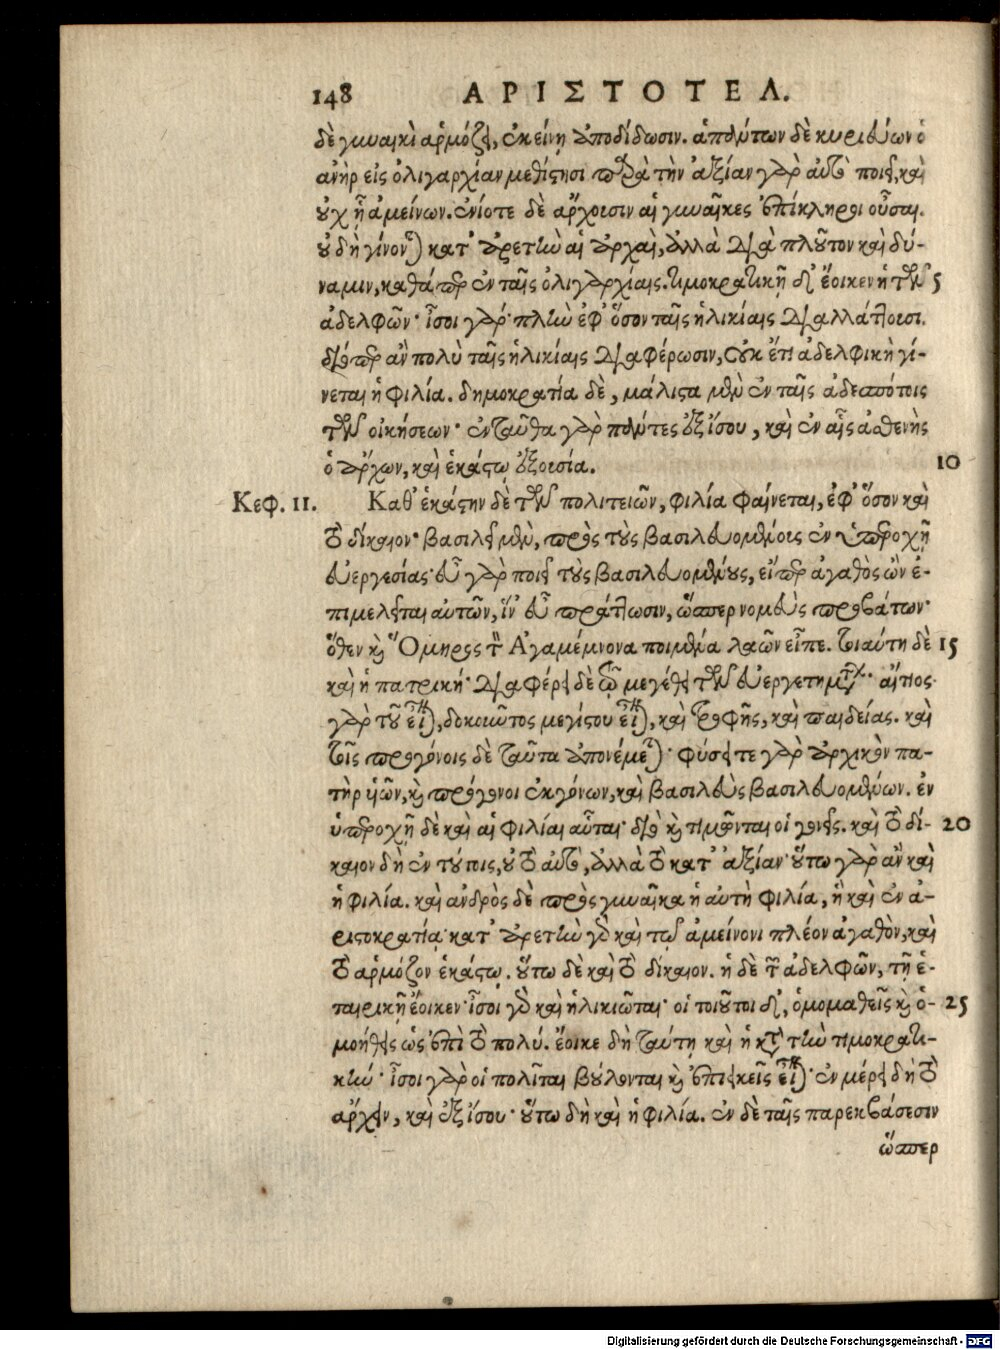 148 ΑΡΙΣΤΟΤΕΛ.
δὲ γυναικὶ ἁρμόζει, ἐκείνῃ ἀποδίδωσιν. ἁπάντων δὲ κυριεύων ὁ
ἀνὴρ εἰς ὀλιγαρχίαν μεθίςησι παρὰ τὴν ἀξίαν γὰρ αὐτὸ ποιεῖ, καὶ
οὐχ ᾗ ἀμείνων. ἐνίοτε δὲ ἄρχουσιν αἱ γυναῖκες ἐπίκληροι οὖσαι.
οὐ δὴ γίνονται κατ' ἀρετὴν αἱ ἀρχαὶ, ἀλλὰ διὰ πλοῦτον καὶ δύ-
ναμιν, καθάπερ ἐν ταῖς ὀλιγαρχίαις. τιμοκρατικῇ δ' ἔοικεν ἡ τῶν 5
ἀδελφῶν· ἴσοι γάρ· πλὴν ἐφ' ὅσον ταῖς ἡλικίαις διαλλάττουσι.
διόπερ ἂν πολὺ ταῖς ἡλικίαις διαφέρωσιν, οὐκ ἔτι ἀδελφικὴ γί-
νεται ἡ φιλία. δημοκρατία δὲ, μάλιςα μὲν ἐν ταῖς ἀδεσπότοις
τῶν οἰκήσεων· ἐνταῦθα γὰρ πάντες ἐξίσου, καὶ ἐν αἷς ἀσθενὴς
ὁ ἄρχων, καὶ ἑκάςῳ ἐξουσία. 10
Κεφ. 11. Καθ' ἑκάςην δὲ τῶν πολιτειῶν, φιλία φαίνεται, ἐφ' ὅσον καὶ
τὸ δίκαιον· βασιλεῖ μὲν, πρὸς τοὺς βασιλευομένους ἐν ὑπεροχῇ
εὐεργεσίας· εὖ γὰρ ποιεῖ τοὺς βασιλευομένους, εἴπερ ἀγαθὸς ὢν ἐ-
πιμελεῖται αὐτῶν, ἵν' εὖ πράττωσιν, ὥσπερ νομεὺς προβάτων·
ὅθεν καὶ Ὅμηρος τὸν Ἀγαμέμνονα ποιμένα λαῶν εἶπε. τοιαύτη δὲ 15
καὶ ἡ πατρική· διαφέρει δὲ τῷ μεγέθει τῶν εὐεργετημάτων· αἴτιος
γὰρ τοῦ εἶναι, δοκοῦντος μεγίςου εἶναι, καὶ τροφῆς, καὶ παιδείας. καὶ
τοῖς προγόνοις δὲ ταῦτα ἀπονέμεται· φύσει τε γὰρ ἀρχικὸν πα-
τὴρ υἱῶν, καὶ πρόγονοι ἐκγόνων, καὶ βασιλεὺς βασιλευομένων. ἐν
ὑπεροχῇ δὲ καὶ αἱ φιλίαι αὗται· διὸ καὶ τιμῶνται οἱ γονεῖς. καὶ τὸ δί- 20
καιον δὴ ἐν τούτοις, οὐ τὸ αὐτὸ, ἀλλὰ τὸ κατ' ἀξίαν· οὕτω γὰρ ἂν καὶ
ἡ φιλία. καὶ ἀνδρὸς δὲ πρὸς γυναῖκα ἡ αὐτὴ φιλία, ἣ καὶ ἐν ἀ-
ριςοκρατίᾳ· κατ' ἀρετὴν γὰρ καὶ τῷ ἀμείνονι πλέον ἀγαθὸν, καὶ
τὸ ἁρμόζον ἑκάςῳ. οὕτω δὲ καὶ τὸ δίκαιον. ἡ δὲ τῶν ἀδελφῶν, τῇ ἑ-
ταιρικῇ ἔοικεν· ἴσοι γὰρ καὶ ἡλικιῶται· οἱ τοιοῦτοι δ', ὁμομαθεῖς καὶ ὁ- 25
μοήθεις ὡς ἐπὶ τὸ πολύ. ἔοικε δὴ ταύτῃ καὶ ἡ κατὰ τὴν τιμοκρατι-
κήν· ἴσοι γὰρ οἱ πολῖται βούλονται καὶ ἐπιεικεῖς εἶναι· ἐν μέρει δὴ τὸ
ἄρχειν, καὶ ἐξίσου· οὕτω δὴ καὶ ἡ φιλία. ἐν δὲ ταῖς παρεκβάσεσιν
ὥσπερ
Digitalisierung gefördert durch die Deutsche Forschungsgemeinschaft - DFG